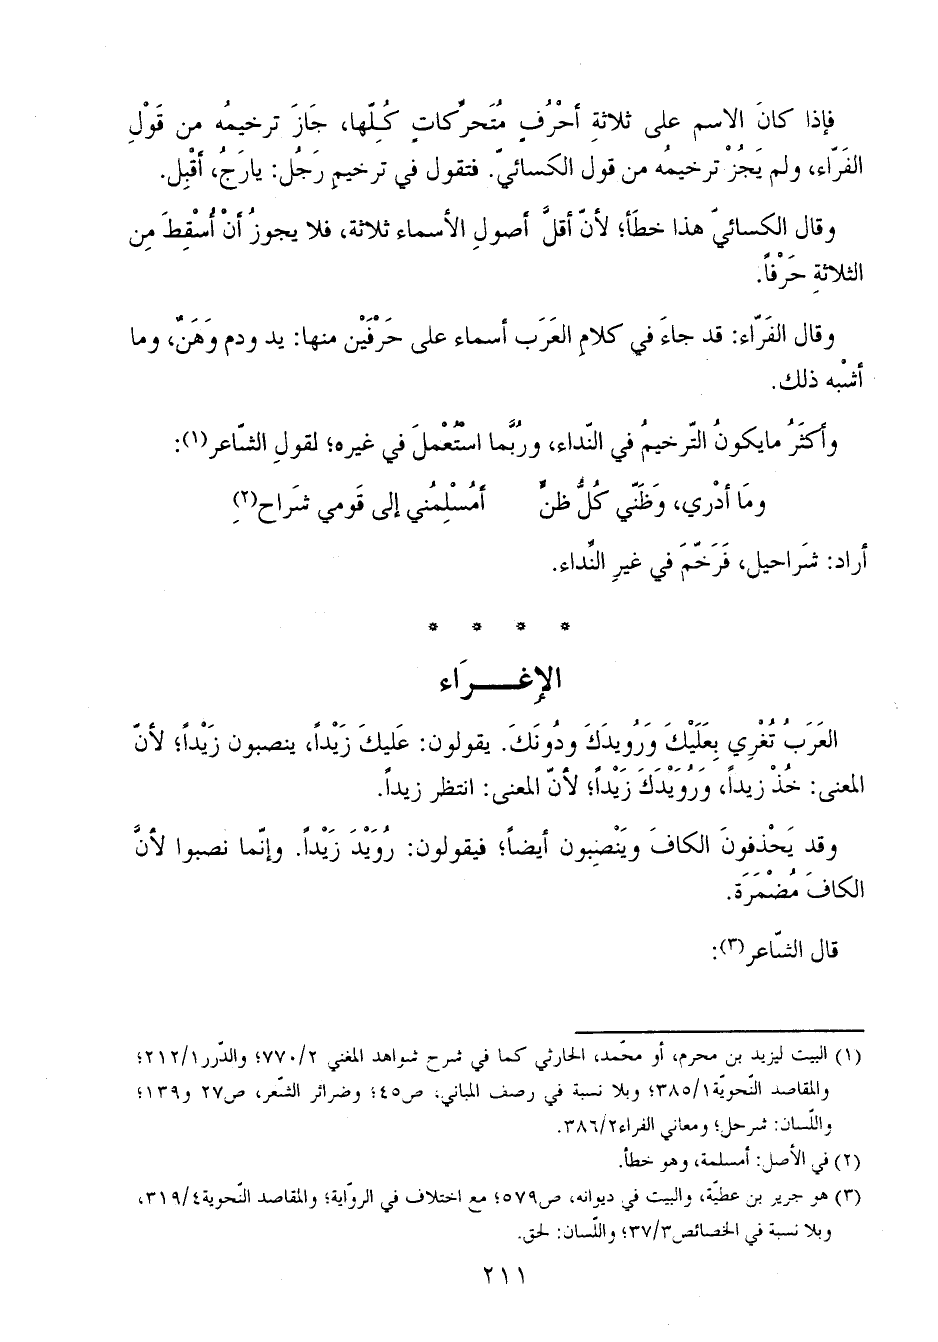 فإذا كانَ الاسم على ثلاثةِ أحْرُفٍ مُتَحرِّكاتٍ كُلّها، جَازَ ترخيمُه من قَوْلِ
الفَرّاء، ولم يَجُزْ ترخيمُه من قول الكسائيّ. فتقول في ترخيمِ رَجُل: يارَجُ، أقْبِل.
وقال الكسائيّ هذا خطَأ؛ لأنّ أقلَّ أصولِ الأسماء ثلاثة، فلا يجوزُ أنْ أُسْقِطَ مِن
الثلاثةِ حَرْفاً.
وقال الفَرّاء: قد جاءَ في كلامِ العَرَب أسماء على حَرْفَيْن منها: يد ودم وَهَنٌ، وما
أشْبه ذلك.
وأكثَرُ مايكونُ التّرخيمُ في النّداء، ورُبَّما اسْتُعْملَ في غيره؛ لقولِ الشّاعر(١):
ومَا أدْري، وَظَنّي كُلُّ ظنٍّ أمُسْلِمُني إلى قَومي شَراحِ(٢)
أراد: شَراحيل، فَرَخّمَ في غيرِ النِّداء.
* * * *
الإغـــرَاء
العَرَبُ تُغْرِي بِعَلَيْكَ وَرُويدَكَ ودُونَكَ. يقولون: عَليكَ زَيْداً، ينصبون زَيْداً؛ لأنّ
المعنى: خُذْ زيداً، وَرُوَيْدَكَ زَيْداً؛ لأنّ المعنى: انتظر زيداً.
وقد يَحْذفونَ الكافَ ويَنْصِبون أيضاً؛ فيقولون: رُوَيْدَ زَيْداً. وإنّما نصبوا لأنَّ
الكافَ مُضْمَرَة.
قال الشّاعر(٣):
(١) البيت ليزيد بن محرم، أو محمّد، الحارثي كما في شرح شواهد المغني ٧٧٠/٢؛ والدّرر٢١٢/١؛
والمقاصد النّحويّة٣٨٥/١؛ وبلا نسبة في رصف المباني، ص٤٥؛ وضرائر الشّعر، ص٢٧ و١٣٩؛
واللّسان: شرحل؛ ومعاني الفراء٣٨٦/٢.
(٢) في الأصل: أمسلمة، وهو خطأ.
(٣) هو جرير بن عطيّة، والبيت في ديوانه، ص٥٧٩؛ مع اختلاف في الرّواية؛ والمقاصد النّحوية٣١٩/٤،
وبلا نسبة في الخصائص٣٧/٣؛ واللّسان: لحق.
٢١١